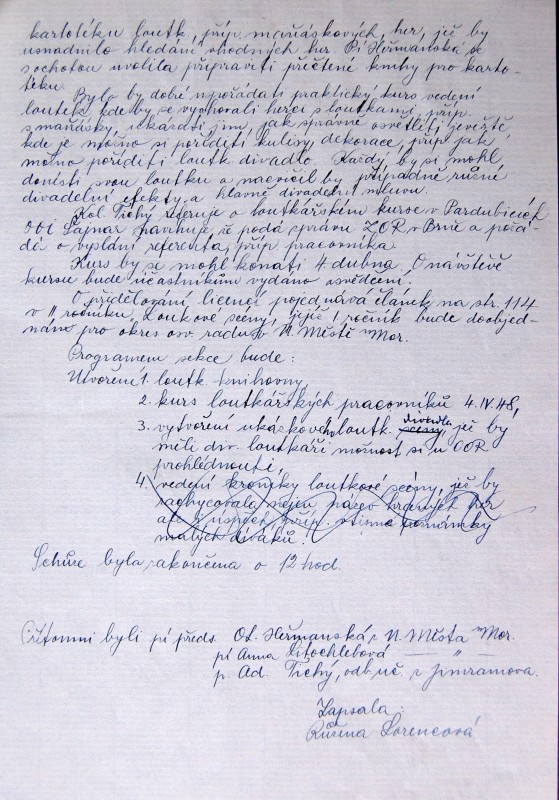 kartoteku loutk., příp. maňáskových her, jež by
usnadnilo hledání vhodných her. Pí Heřmanská se
ochotou uvolila připraviti přečtené knihy pro karto-
téku.
Bylo by dobré uspořádati praktický kurs vedení
loutek, kde by se vychovali herci s loutkami, příp.
s maňásky, ukázati jim, jak správně osvětliti jeviště,
kde je možno si poříditi kulisy, dekorace, příp. jak
možno poříditi loutk. divadlo. Každý by si mohl
donésti svou loutku a nacvičil by případně různé
divadelní efekty a hlavně divadelní mluvu.
Kol. Tichý referuje o loutkářském kurse v Pardubicích
OOI Lajnar navrhuje, že podá zprávu ZOR v Brně a požá-
dá o vyslání referenta, příp. pracovníka.
Kurs by se mohl konati 4 dubna. O návštěvě
kursu bude účastníkům vydáno osvědčení.
O přidělování licencí pojednává článek na str. 114
v II ročníku Loutkové scény, jejíž 1 ročník bude doobjed-
nán pro okres. osv. radu v N. Městě Mor.
Programem sekce bude:
Utvoření 1. loutk. knihovny,
2. kurs loutkářských pracovníků 4. IV. 48,
3. vytvoření ukázkového loutk. divadla, jež by
měli div. loutkáři možnost si u OOR
prohlédnouti,
4. vedení kroniky loutkové scény, jež by
zachycovala nejen název hraných her
ale i úspěch příp. vtipné poznámky
malých diváků.
Schůze byla zakončena o 12 hod.
Přítomni byli pí předs. Ot. Heřmanská z N. Města Mor.
pí Anna Vítochlebová — " —
p. Ad. Tichý, odb. uč. z Jimramova.
Zapsala:
Růžena Lorencová